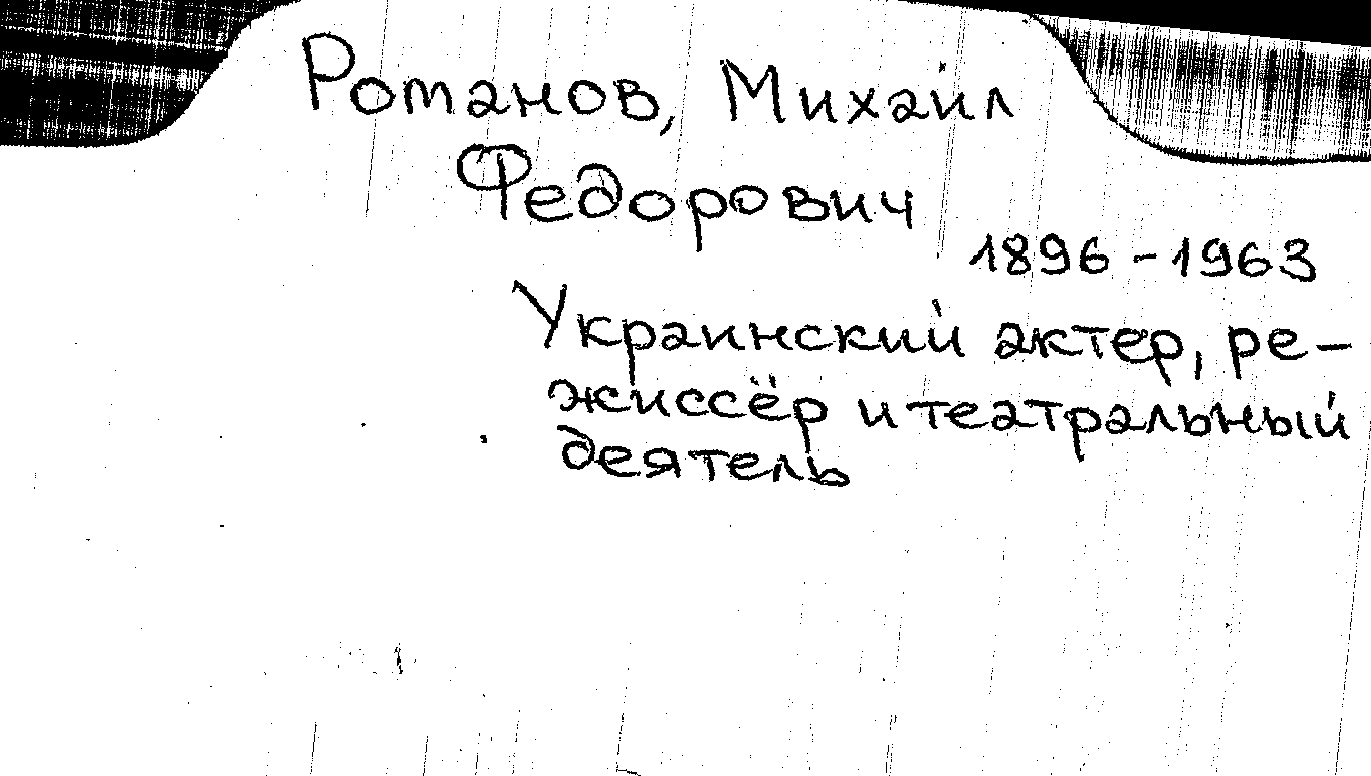 Романов, Михаил
Федорович
1896 - 1963
Украинский актер, ре-
жиссёр и театральный
деятель